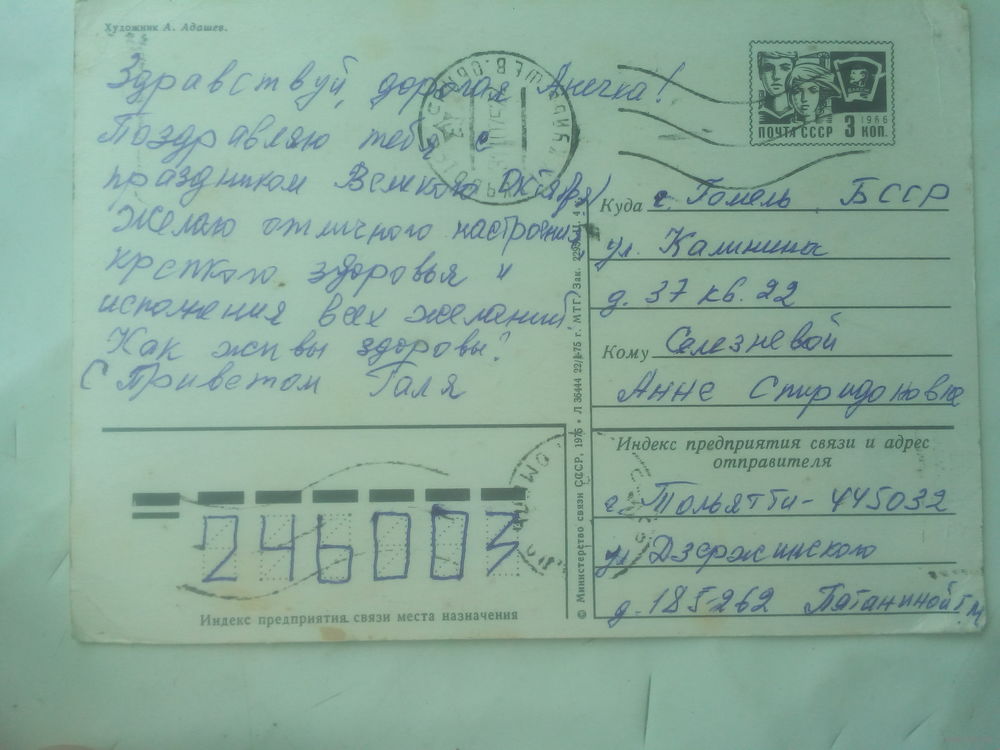 Художник А. Адашев.
Здравствуй, дорогая Анечка!
Поздравляю тебя с
праздником Великого Октября
Желаю отличного настроения
крепкого здоровья и
исполнения всех желаний
Как жи вы здоровы?
С Приветом Галя
ПОЧТА СССР 3 КОП.
1966
Куда г. Гомель БССР
ул. Калинина
д. 37 кв. 22
Кому Селезневой
Анне Спиридоновне
Индекс предприятия связи и адрес
отправителя
г. Тольятти - 445032
ул Дзержинского
д. 185-262 Патаниной Г. М
246003
Индекс предприятия связи места назначения
© Министерство связи СССР, 1975 • Л 36444 22/I-75 г. МТГ. Зак.